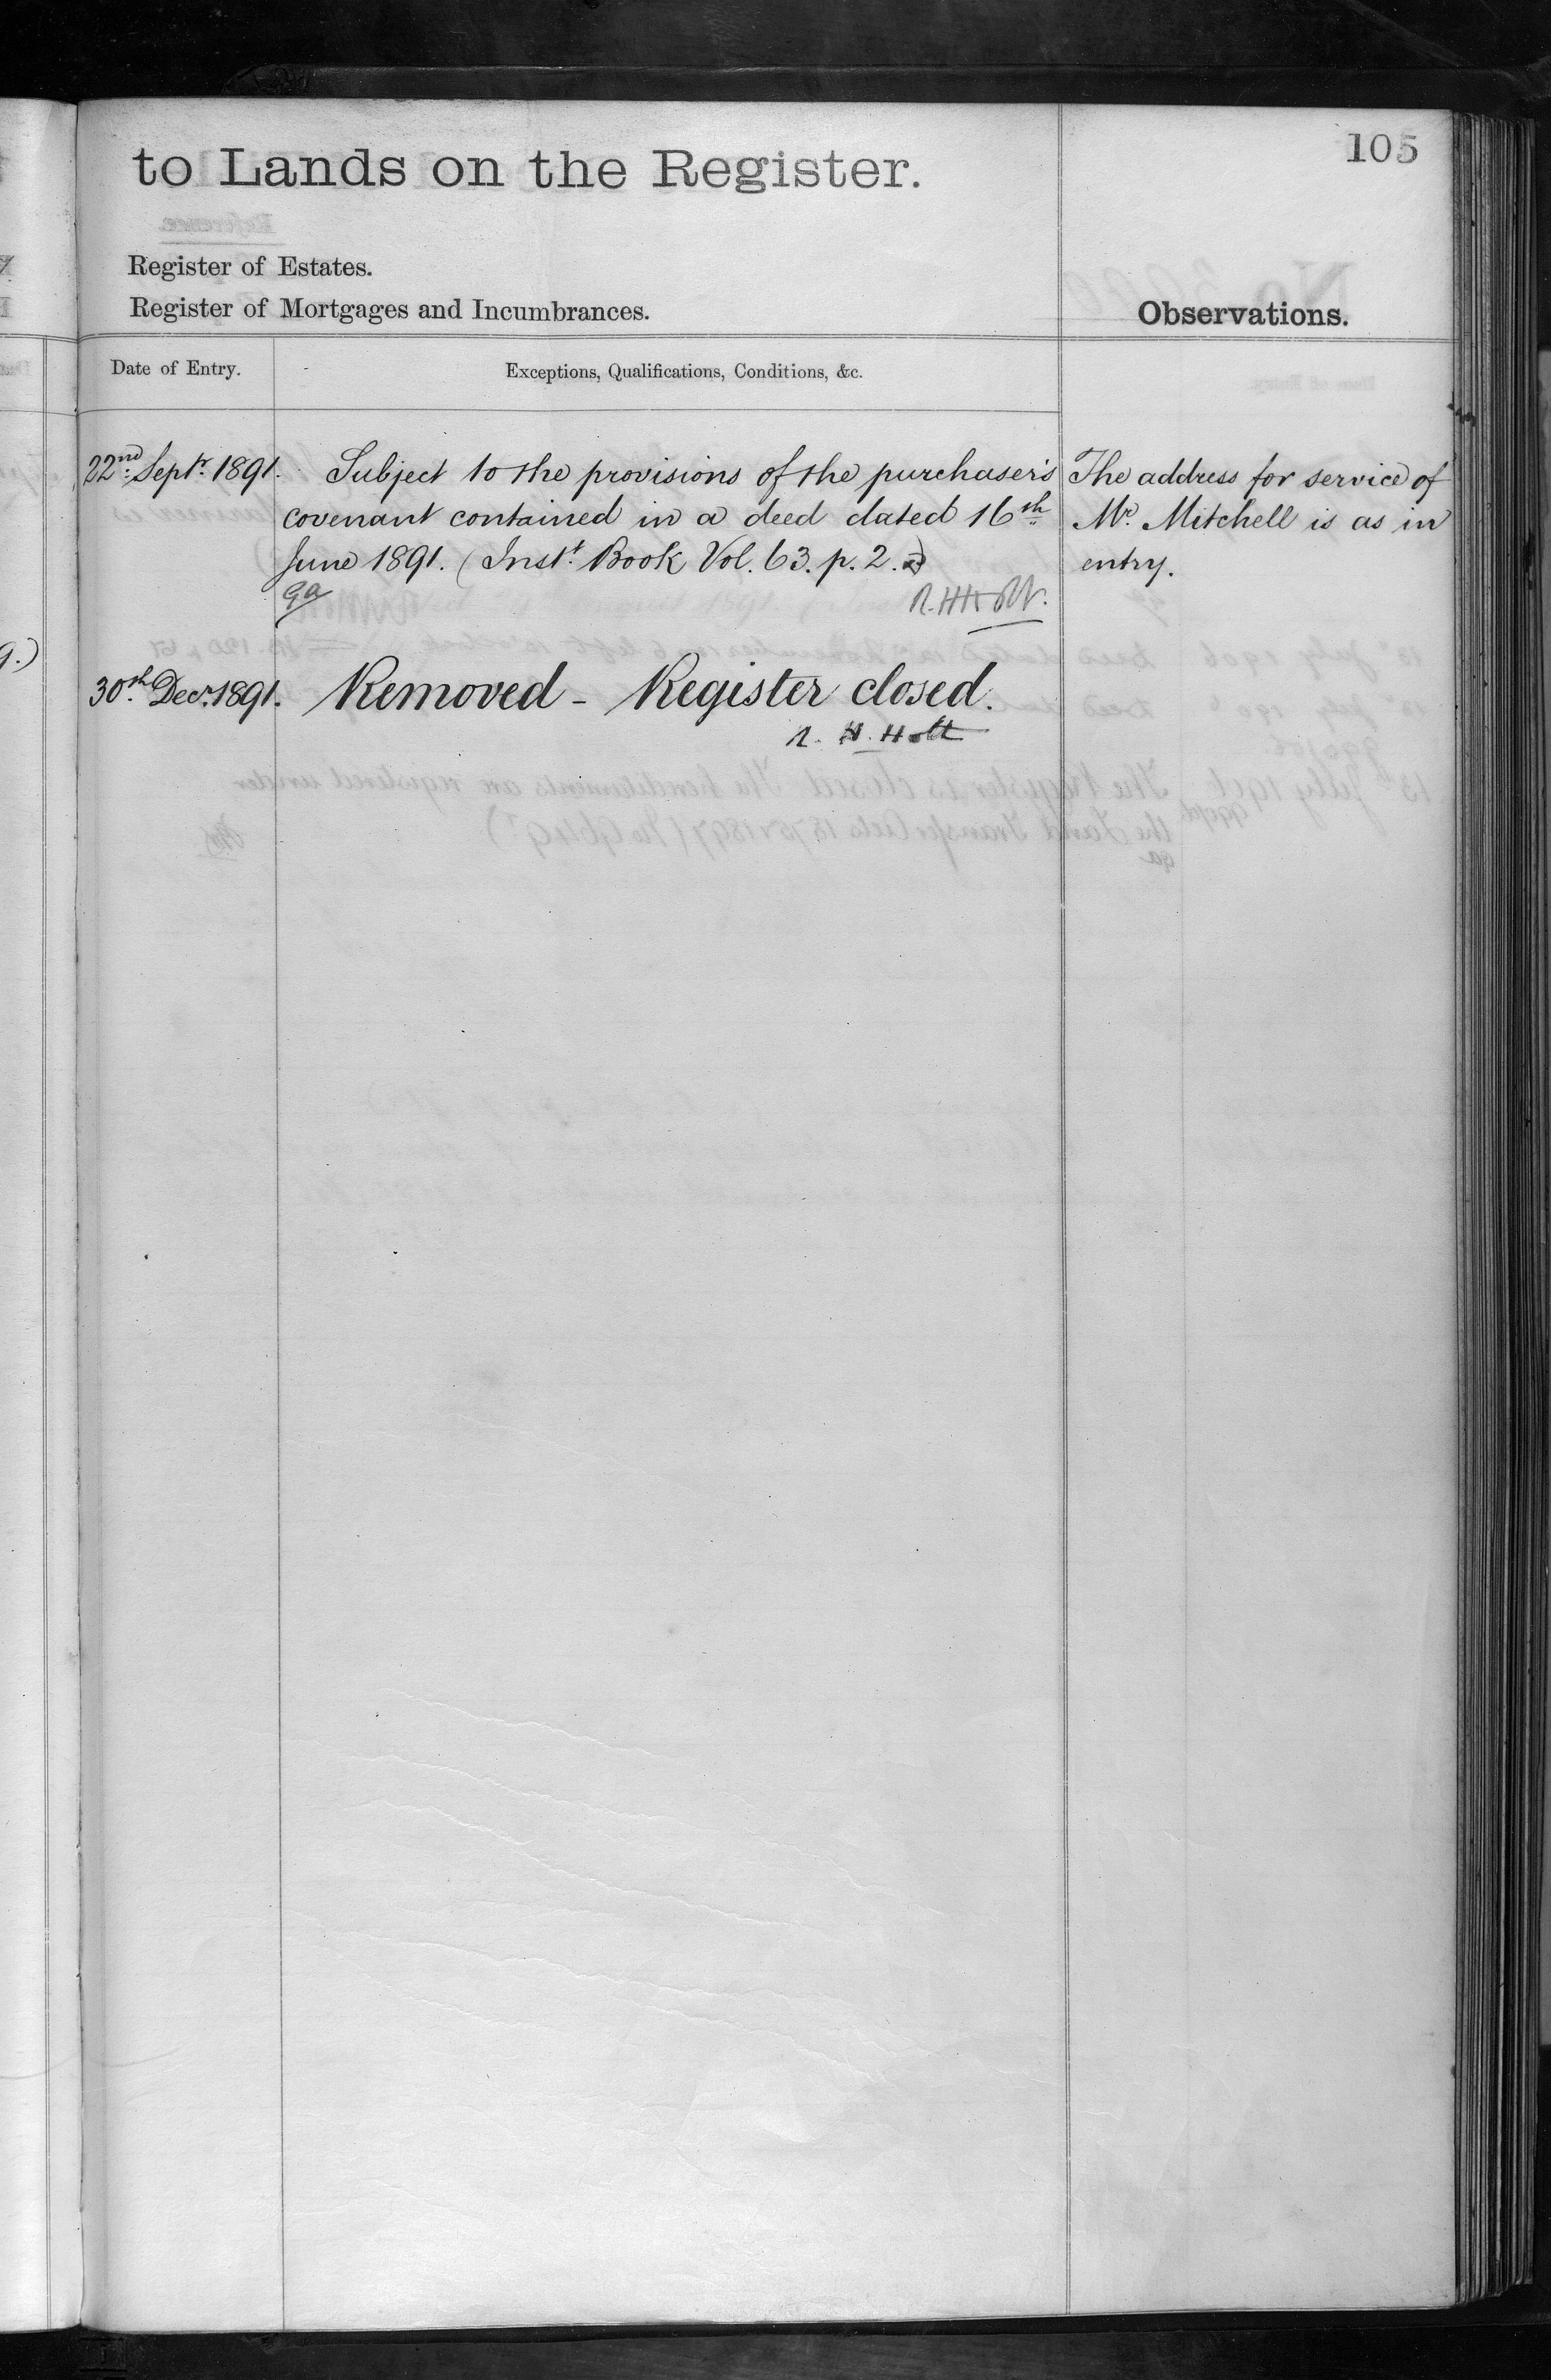 105
to Lands on the Register.
Register of Estates.
Register of Mortgages and Incumbrances.
Observations.
Date of Entry.
Exceptions, Qualifications, Conditions, &c.
22nd Septr. 1891.
Subject to the provisions of the purchaser's
covenant contained in a deed dated 16th
June 1891. (Inst. Book Vol. 63. p. 2.)
ga
R. H. Holt.
The address for service of
Mr. Mitchell is as in
entry.
30th Decr. 1891.
Removed - Register closed.
R. H. Holt